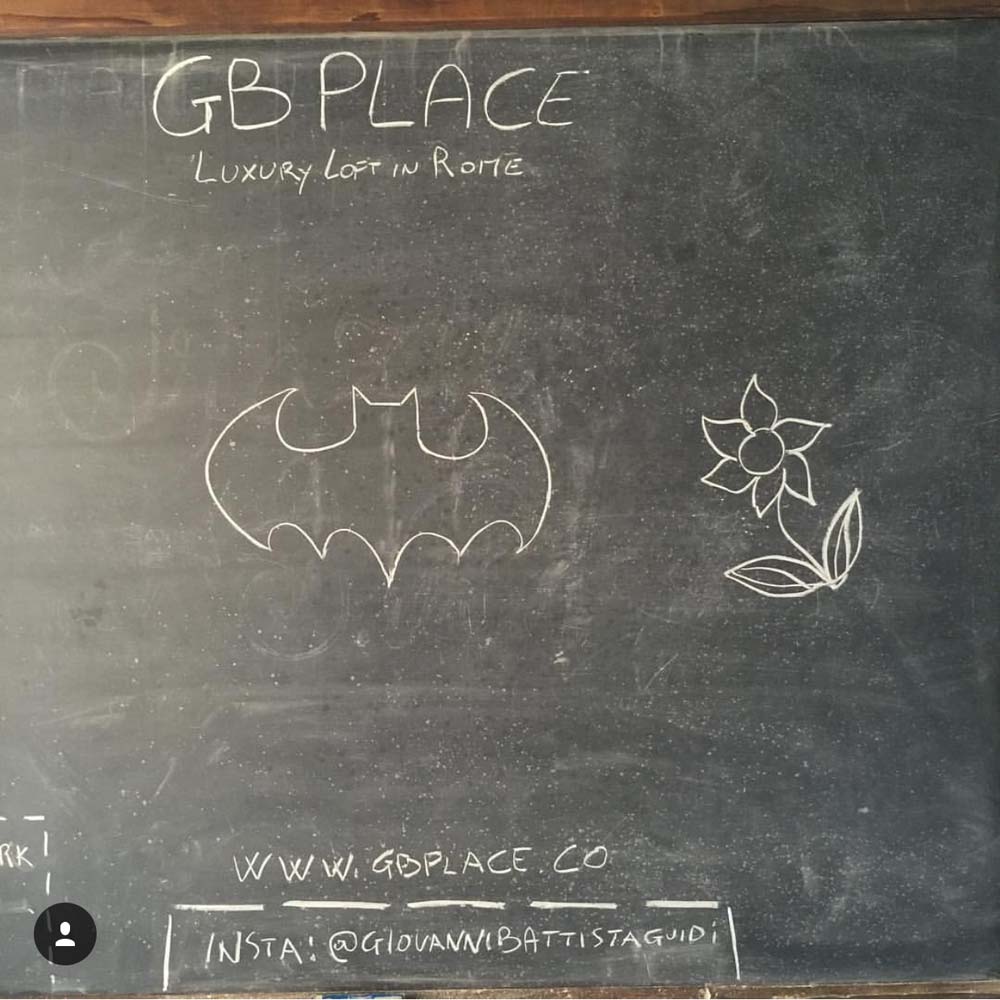 GB PLACE
'LUXURY LOFT IN ROME
RK
WWW.GBPLACE.CO
INSTA: @GIOVANNIBATTISTAGUIDI